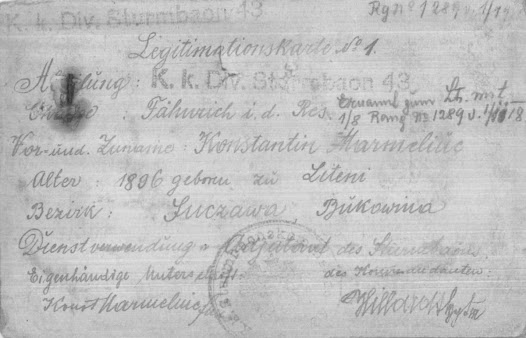 K. k. Div. Sturmbaon 43
Rg № 1289 v. 1/
Legitimationskarte № 1.
K. k. Div. Sturmbaon 43
Fähnrich i. d. Res. Ernannt zum Lt. mit
1/8 Rang № 1289 v. 18
Vor- und Zuname: Konstantin Harmeliuc
Alter: 1896 geboren zu Liteni
Bezirk: Suczawa, Bukowina
Dienstverwendung Adjutant des
Eigenhändige Unterschrift des Kommandanten
Konst Harmeliuc